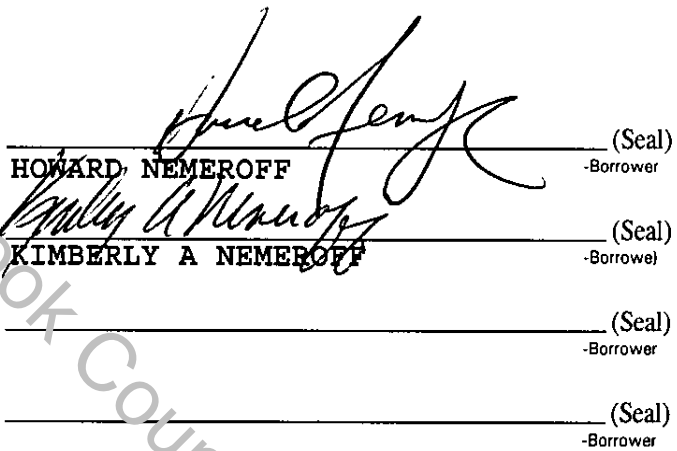 (Seal)
HOWARD NEMEROFF
-Borrower
Kimberly A Nemeroff
(Seal)
KIMBERLY A NEMEROFF
-Borrower
(Seal)
-Borrower
(Seal)
-Borrower
ok Coun